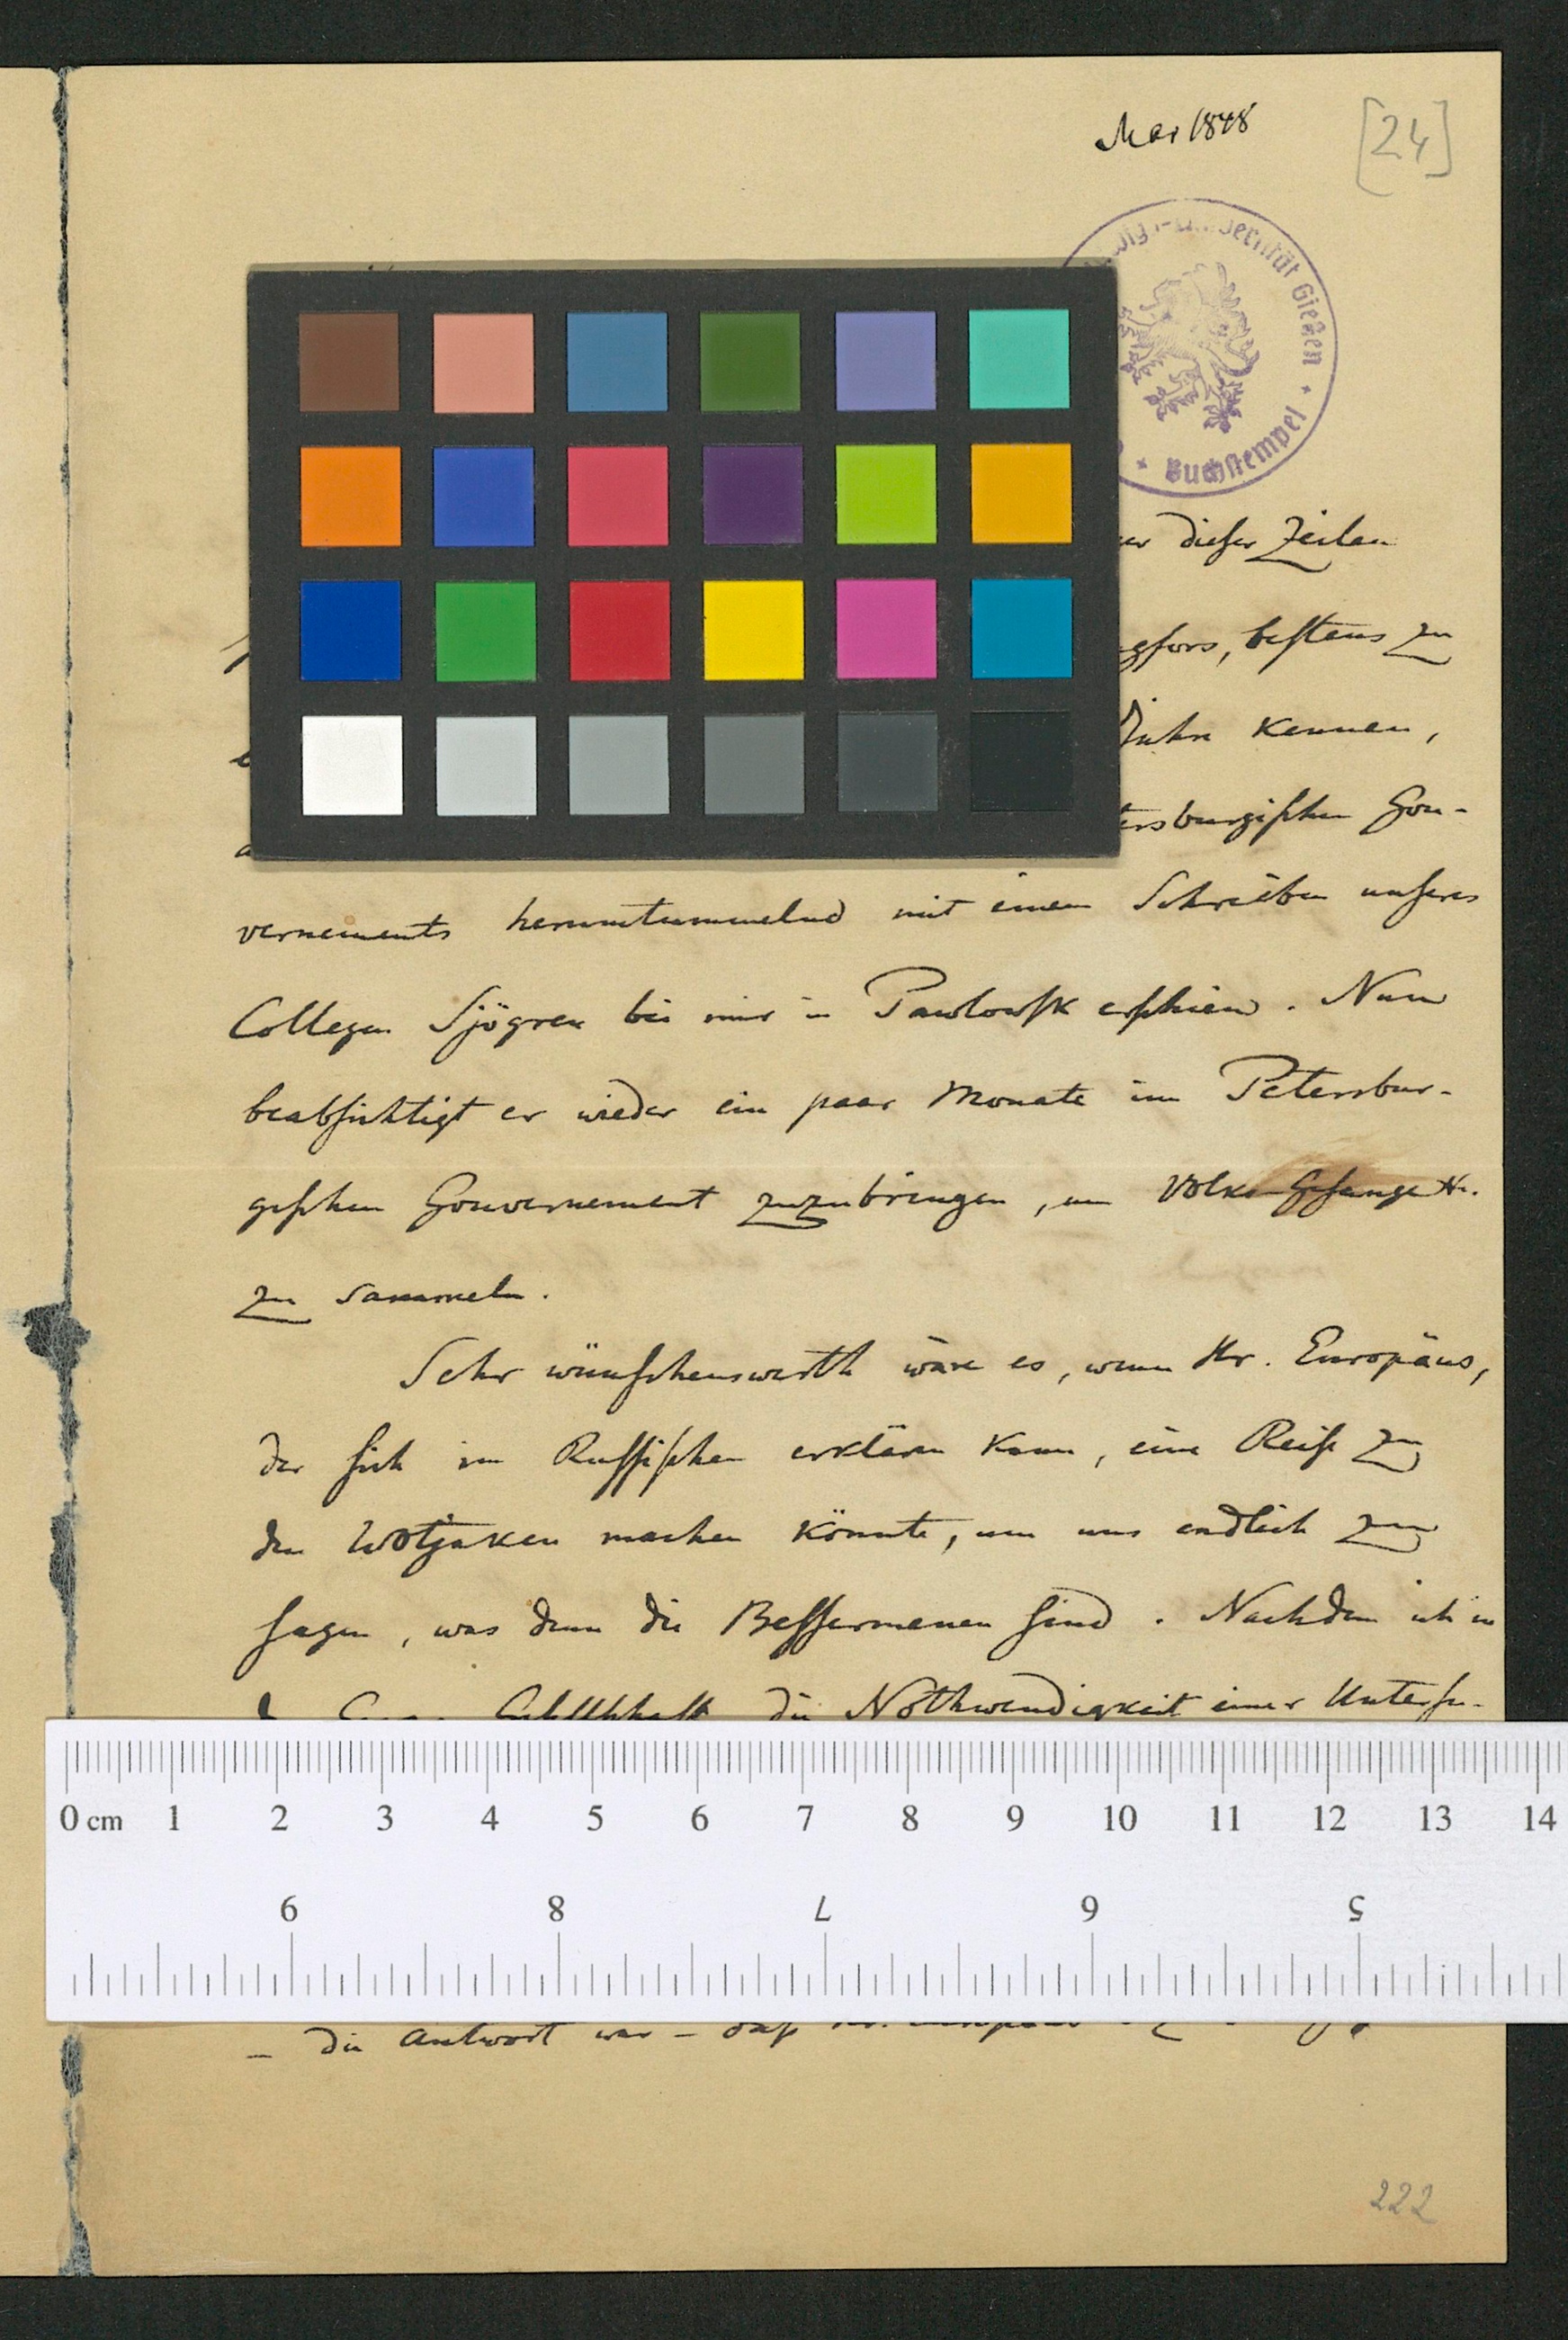 Mai 1848
[24]
Gießen
Buchstempel
dieser Zeilen
gfors, bestens zu
Jahre kennen,
tersburgischen Gou-
vernements herumtummelnd mit einem Schreiben unseres
Collegen Sjögren bei mir in Pawlowsk erschien. Nun
beabsichtigt er wieder ein paar Monate im Petersbur-
gischen Gouvernement zuzubringen, um Volks-Gesänge
zu sammeln.
Sehr wünschenswerth wäre es, wenn Hr. Europäus,
der sich im Russischen erklären kann, eine Reise zu
den Wotjaken machen könnte, um uns endlich zu
sagen, was denn die Bessermenen sind. Nachdem ich in
die Nothwendigkeit einer Untersu-
0 cm 1 2 3 4 5 6 7 8 9 10 11 12 13 14
9 8 7 6 5
– die Antwort war – daß
222